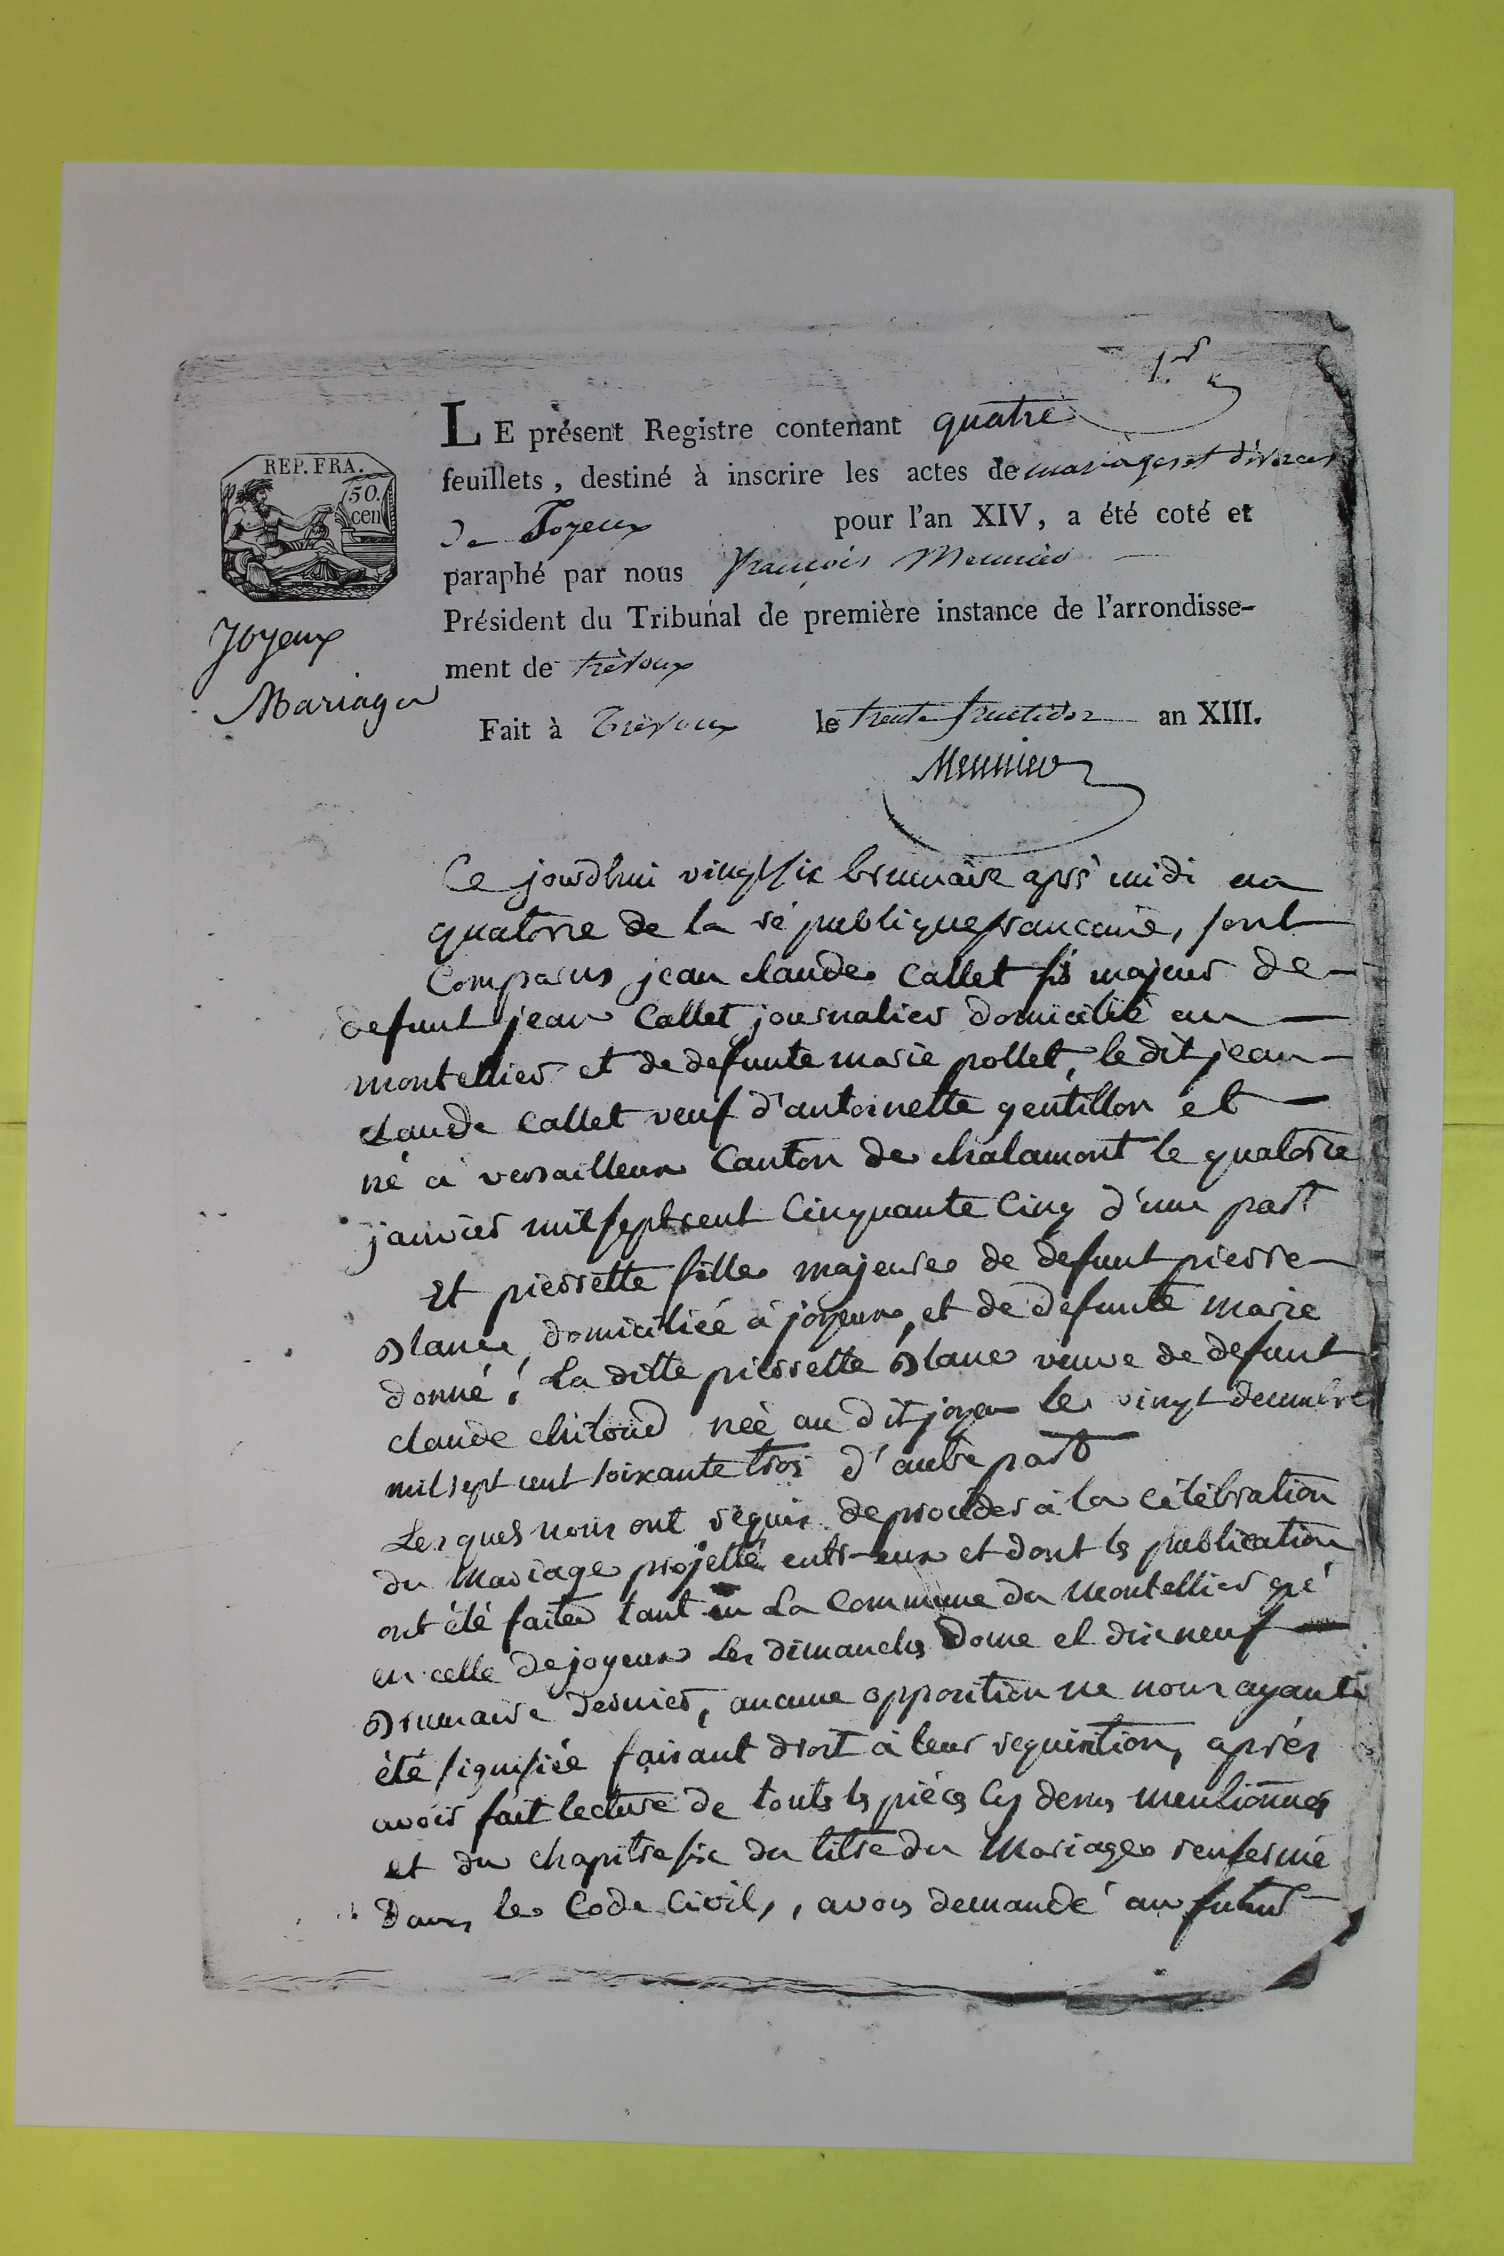 1.er
LE présent Registre contenant quatre
feuillets, destiné à inscrire les actes de mariages et divorces
de Joyeux pour l'an XIV, a été coté et
paraphé par nous François Meunier
Président du Tribunal de première instance de l'arrondisse-
ment de trévoux
Fait à Trévoux le trente fructidor an XIII.
Meunier
REP. FRA.
50.
cen
Joyeux
Mariages
Ce jourdhui vingt six brumaire aprè midi an
quatorze de la république francaise, sont
Comparus jean claude Callet fis majeur de
defunt jean Callet journalier domicilié au
montellier et de defunte marie pollet, le dit jean
claude Callet veuf d'antoinette gentillon et
né à versailleux Canton de chalamont le quatorze
janvier mil sept cent Cinquante Cinq d'une part
Et pierrette fille majeure de defunt pierre
Blanc domiciliée à joyeux, et de defunte marie
donné, La ditte pierrette Blanc veuve de defunt
claude née au dit joyeu le vingt decembre
mil sept cent soixante trois d'autre part
Lesquels nous ont requis de proceder à la célébration
du Mariage projetté entr-eux et dont ls publication
ont été faites tant en La Commune du montellier qué
en celle de joyeux Les dimanches Douze et dix neuf
Brumaire dernier, aucune opposition ne nous ayant
été signifiée faisant droit à leur requisition, aprés
avoir fait lecture de touts ls piéces Cy dessus mentionnés
et du chapitre six du titre du Mariage renfermé
Dans le Code Civil, avons demandé au futur